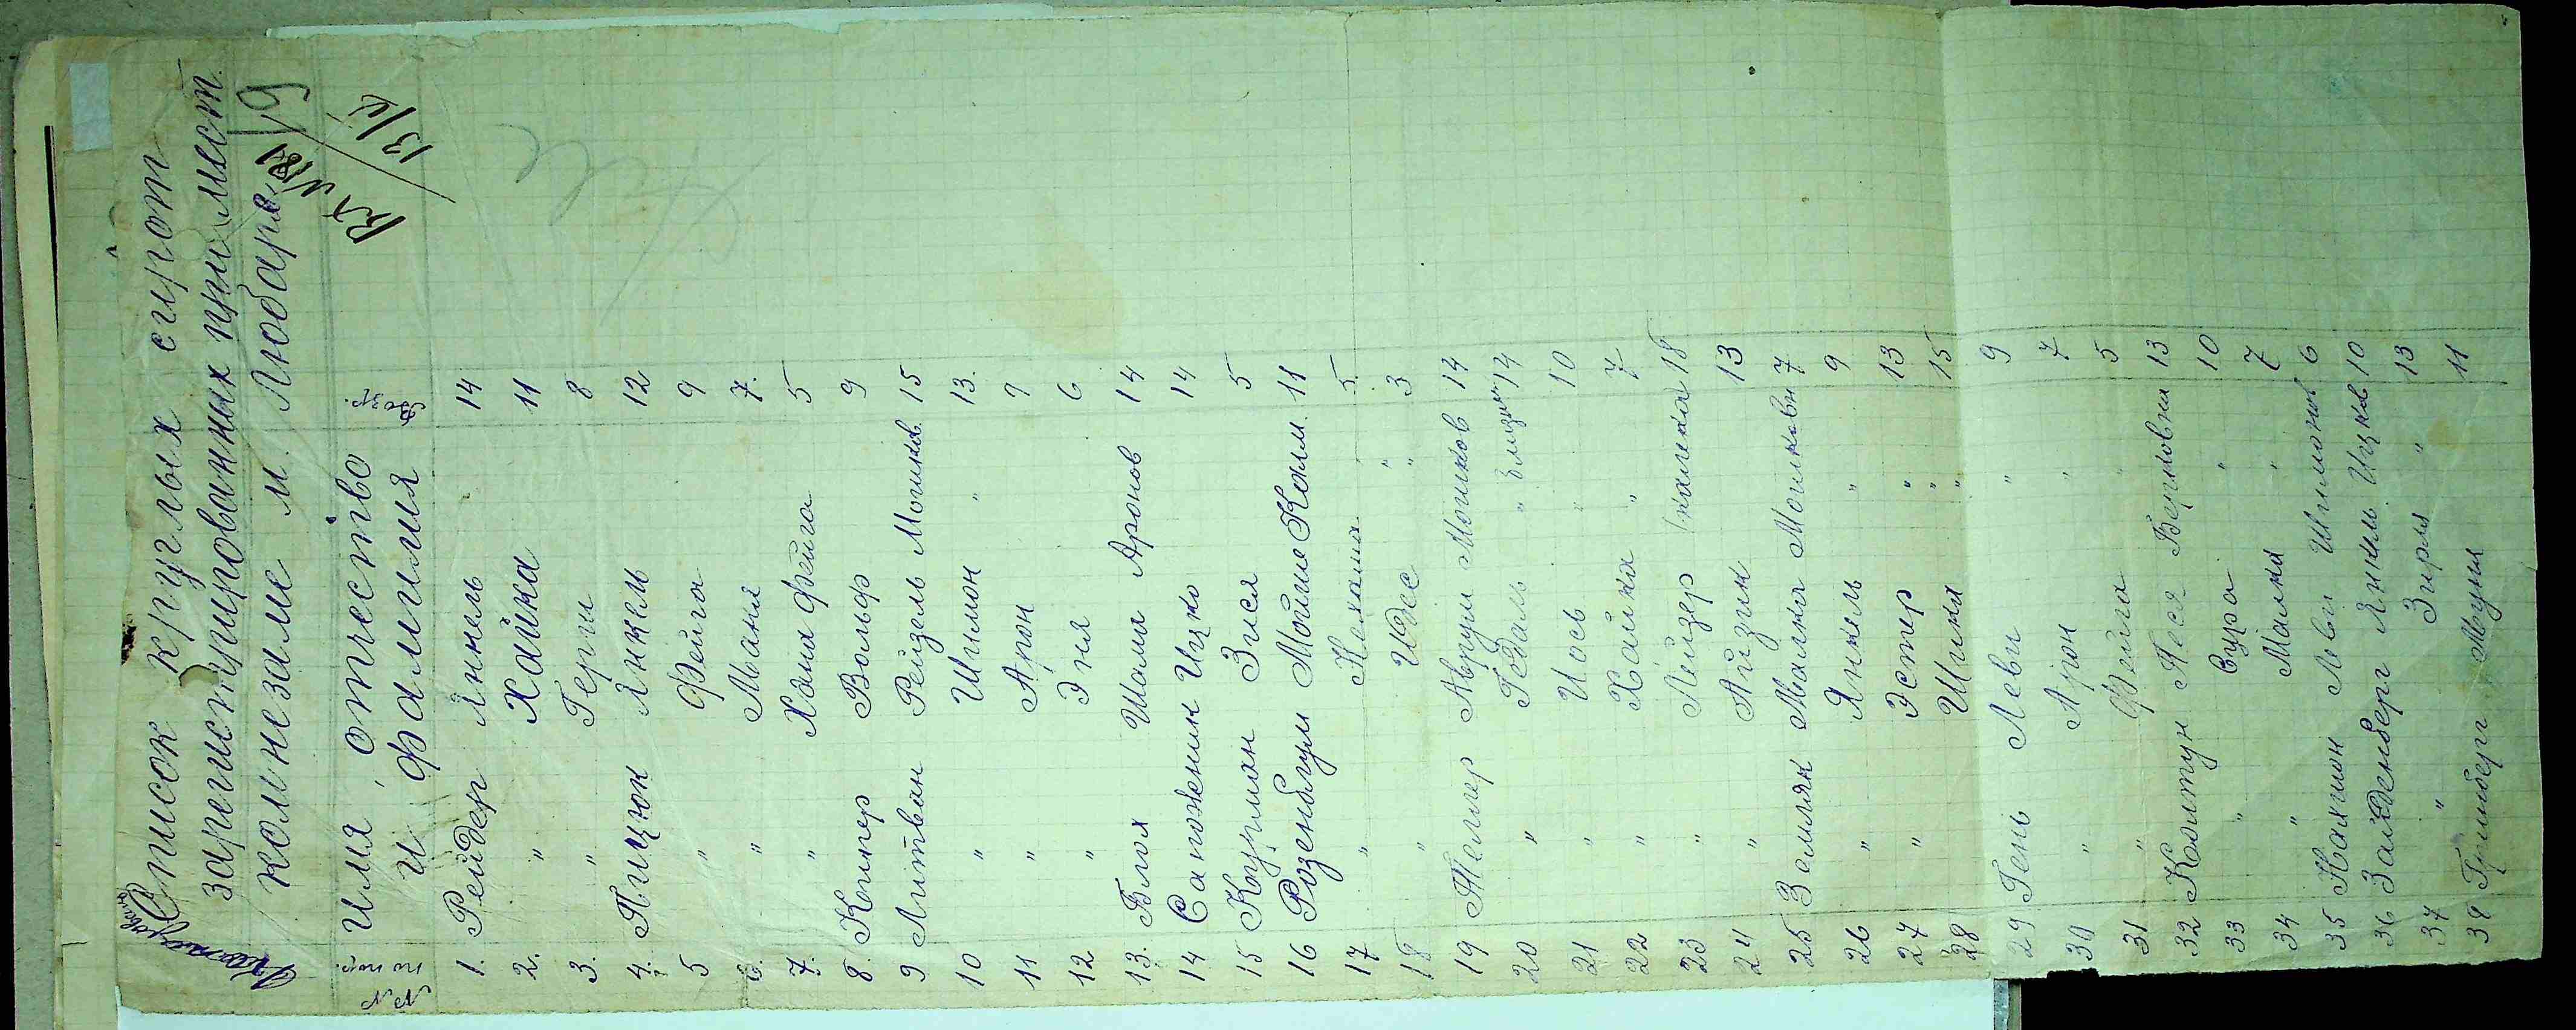 Список круглых сирот
зарегистрированных при мест.
комнезаме м. Любаря
Вх № 181
13/IV
19
№№ по пор. Имя, отчество и фамилия Возр.
1. Рейдер Янкель 14
2. " Хайка 11
3. " Герш 8
4. Пицюк Янкель 12
5 " Фейга 9
6. " Маня 7.
7. " Хана Фейга 5
8. Кипер Вольф 9
9 Литван Рейзель Мошков. 15
10 " Шимон " 13.
11 " Арон 9
12 " Эня 6
13. Блох Шома Аронов 14
14 Сапожник Ицко 14
15 Кугрман Зися 5
16 Розенблум Мойше Колм. 11
17 " Нехама " 5.
18 " Идес " 3
19 Теллер Аврум Мошков 14
20 " Гедаль " 14
21 " Иось " 10
22 " Хайка " 7
23 " Лейзер /калека 18
24 " Айзик 13
25 Земляк Малка Мошковн 7
26 " Янкель " 9
27 " Эстер " 13
28 Шика " 15
29 Гень Леви " 9
30 " Арон " 7
31 " Фейга " 5
32 Колтун Песя Берковна 13
33 " Сура " 10
34 " Малка " 7
35 Нахман Леви Шимонов 6
36 Зайденберг Янкель Ицков 10
37 " Зирля " 13
38 Гринберг Муня 11